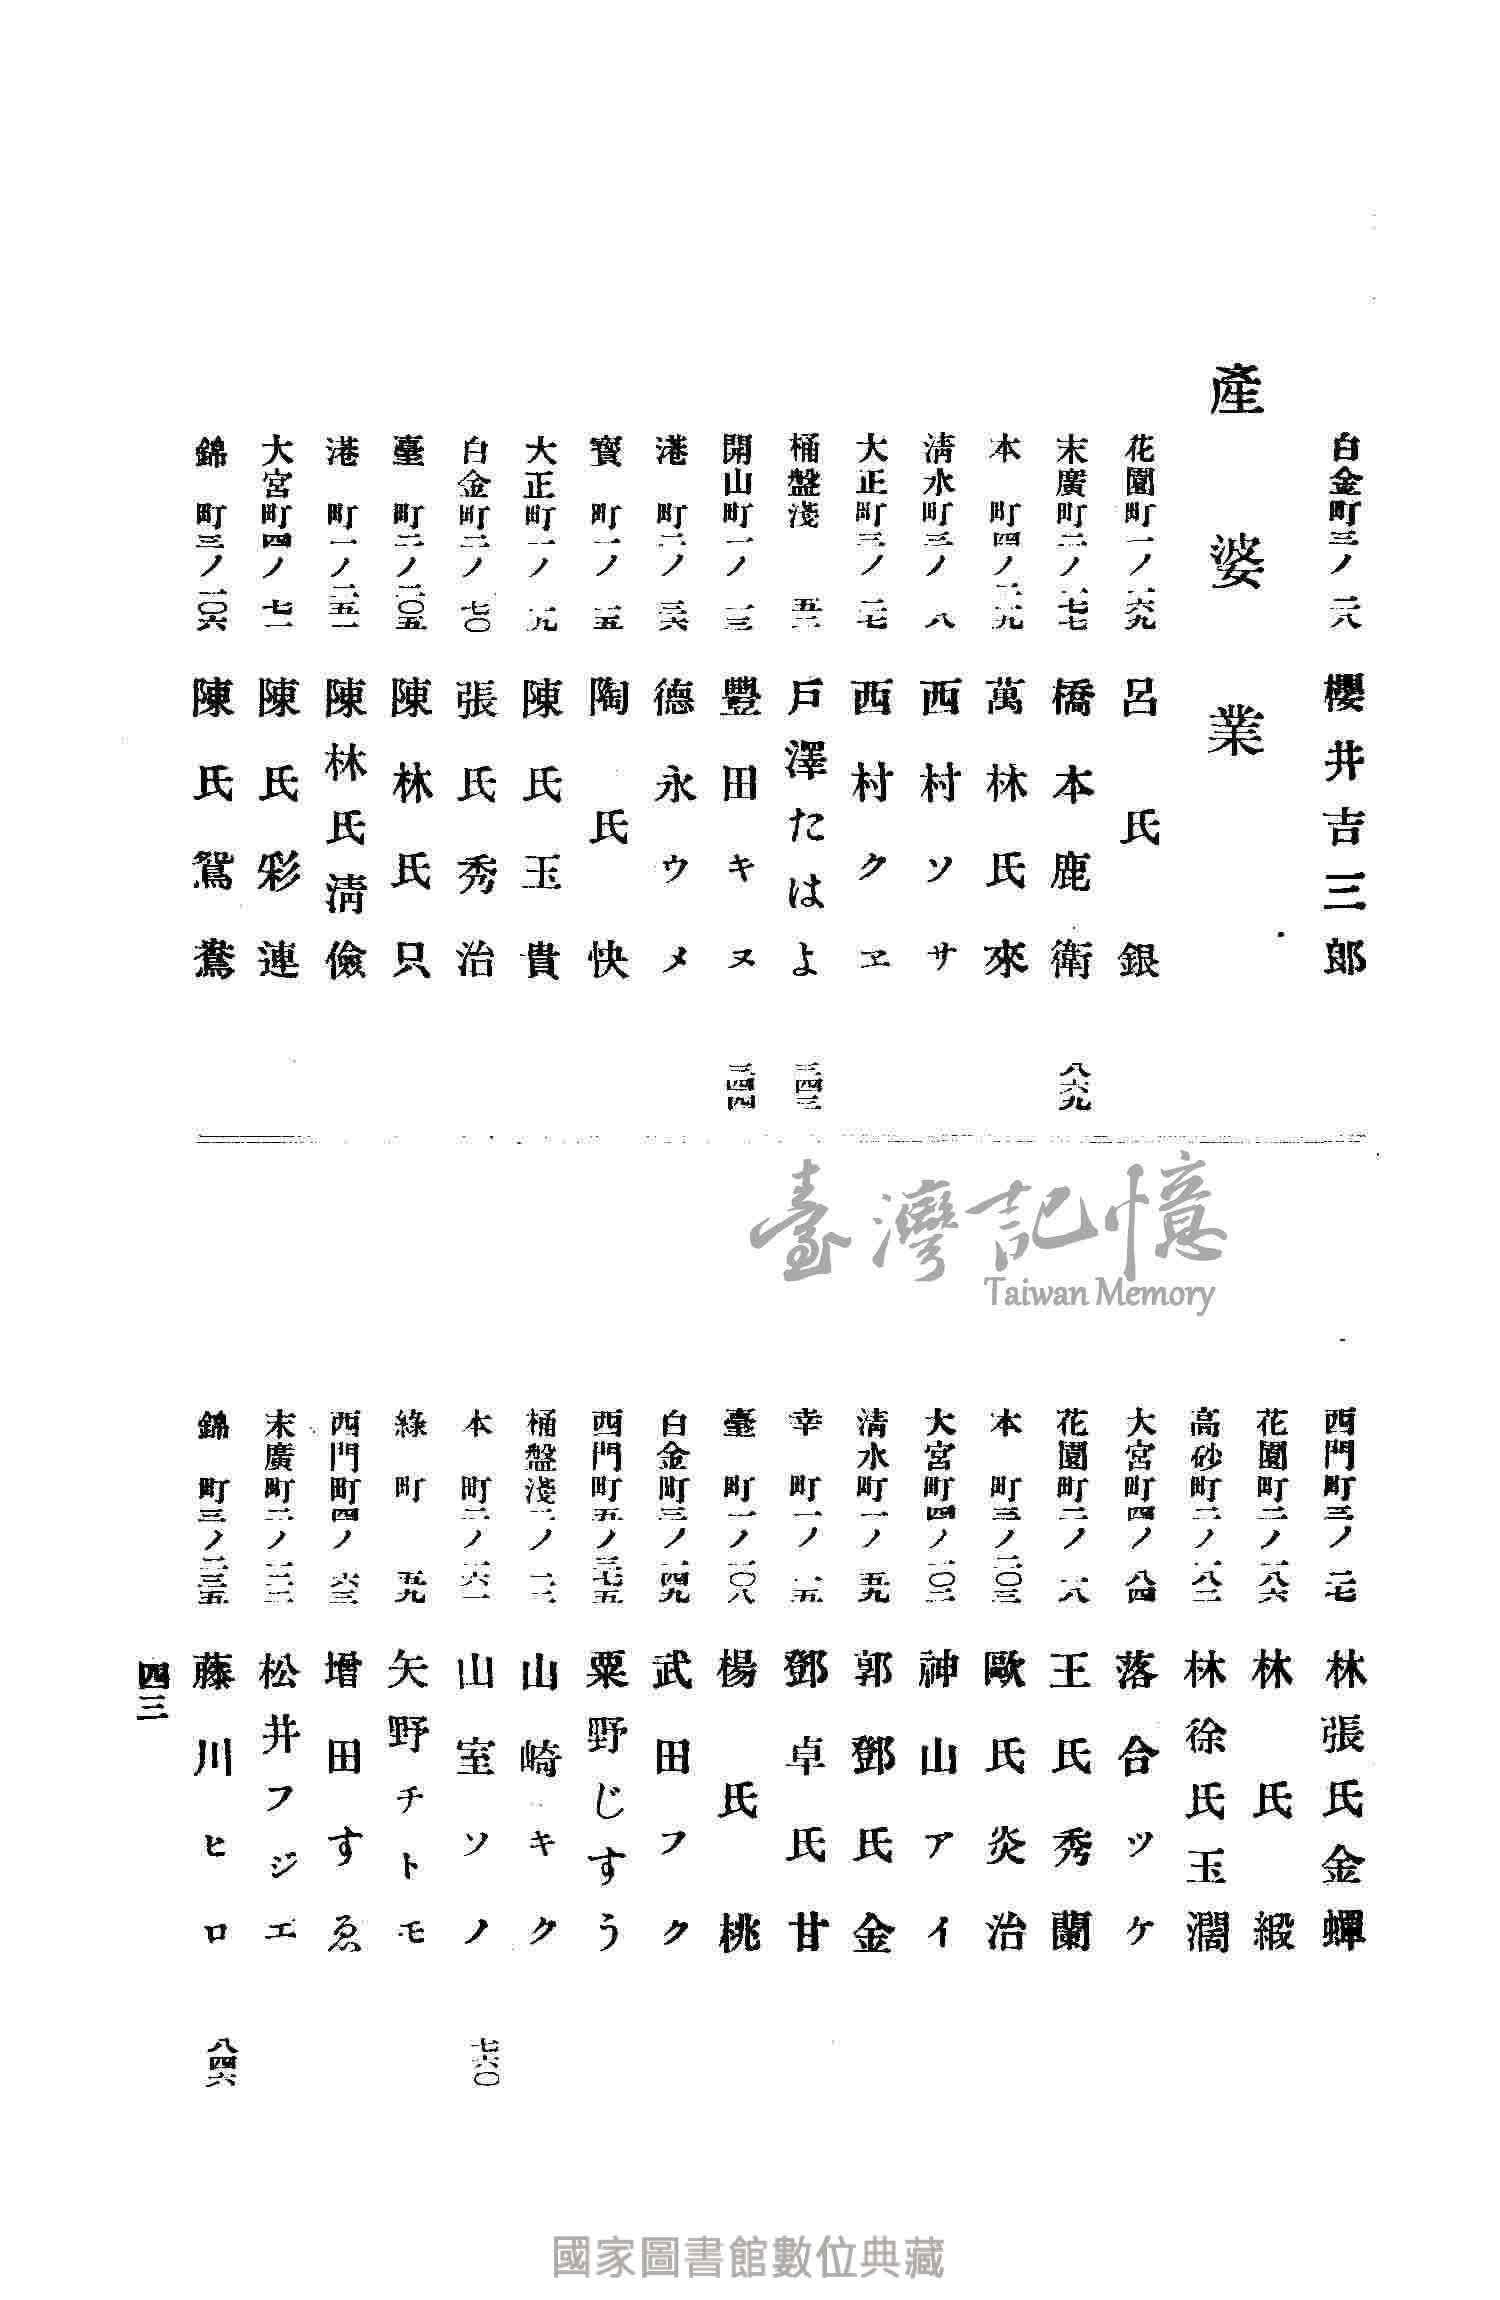 白金町三ノ二八 櫻井吉三郎
產婆業
花園町一ノ一六九 呂氏銀
末廣町二ノ一七七 橋本鹿衛 八六九
本町四ノ二九 萬林氏來
淸水町三ノ八 西村ソサ
大正町三ノ二七 西村クヱ
桶盤淺 五二 戶澤たはよ 三四三
開山町一ノ一三 豐田キヌ 三四四
港町二ノ三六 德永ウメ
寶町一ノ一五 陶氏快
大正町一ノ一九 陳氏玉貴
白金町二ノ七〇 張氏秀治
臺町二ノ二〇五 陳林氏只
港町一ノ二五一 陳林氏淸儉
大宮町四ノ七一 陳氏彩連
錦町三ノ一〇六 陳氏鴛鴦
西門町三ノ二七 林張氏金蟬
花園町二ノ一八六 林氏緞
高砂町二ノ一八二 林徐氏玉濶
大宮町四ノ八四 落合ツケ
花園町二ノ一八 王氏秀蘭
本町三ノ二〇三 歐氏炎治
大宮町四ノ一〇二 神山アイ
淸水町一ノ五九 郭鄧氏金
幸町一ノ一五 鄧卓氏甘
臺町一ノ一〇八 楊氏桃
白金町三ノ一四九 武田フク
西門町五ノ三七五 粟野じすう
桶盤淺二ノ二二 山崎キク
本町二ノ一六一 山室ソノ 七六〇
綠町 五九 矢野チトモ
西門町四ノ六三 增田すゑ
末廣町二ノ一二二 松井フジエ
錦町三ノ二三五 藤川ヒロ 八四六
四三
臺灣記憶
Taiwan Memory
國家圖書館數位典藏